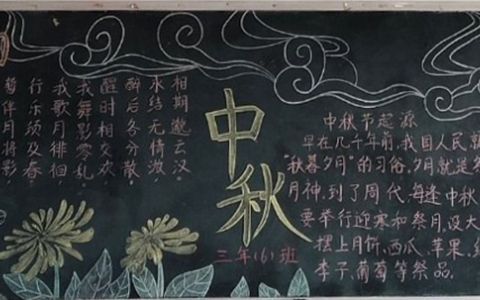 相期邀云汉
永结无情游
醉后各分散
醒时相交欢
我舞影零乱
我歌月徘徊
行乐须及春
暂伴月将影
中秋
三年(6)班
中秋节起源
早在几千年前,我国人民就
"秋暮夕月"的习俗。夕月就是
月神,到了周代,每逢中秋
要举行迎寒和祭月,设大
摆上月饼、西瓜、苹果、
李子、葡萄等祭品。